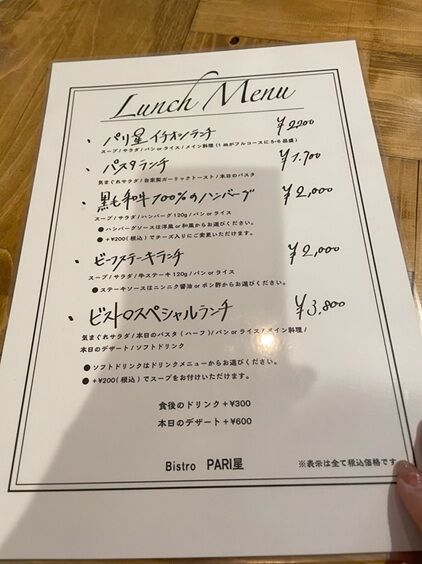 Lunch Menu
・パリ星イチオシランチ ¥2,200
スープ/サラダ/パンorライス/メイン料理(1皿がフルコースに5~6品盛)
・パスタランチ ¥1,700
気まぐれサラダ/自家製ガーリックトースト/本日のパスタ
・黒毛和牛100%のハンバーグ ¥2,000
スープ/サラダ/ハンバーグ120g/パンorライス
●ハンバーグソースは洋風or和風からお選びください。
●+¥200(税込)でチーズ入りにご変更いただけます。
・ビーフステーキランチ ¥2,000
スープ/サラダ/牛ステーキ120g/パンorライス
●ステーキソースはニンニク醤油orポン酢からお選びください。
・ビストロスペシャルランチ ¥3,800
気まぐれサラダ/本日のパスタ(ハーフ)/パンorライス/メイン料理/
本日のデザート/ソフトドリンク
●ソフトドリンクはドリンクメニューからお選びください。
●+¥200(税込)でスープをお付けいただけます。
食後のドリンク+¥300
本日のデザート+¥600
Bistro PARI星
※表示は全て税込価格です